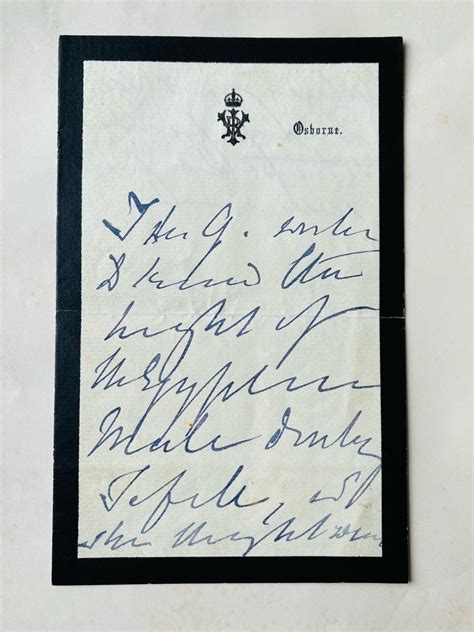 Osborne.
The Q. wishes
to know the
height of
the Egyptian
Male donkey
Tefik, as
she thought